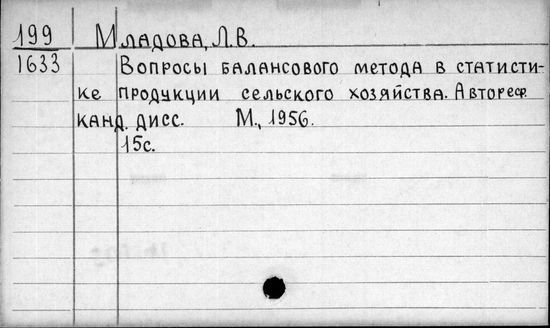 199 Младова, Л.В.
1633 Вопросы балансового метода в статисти-
ке продукции сельского хозяйства. Автореф.
канд. дисс. М., 1956.
15с.